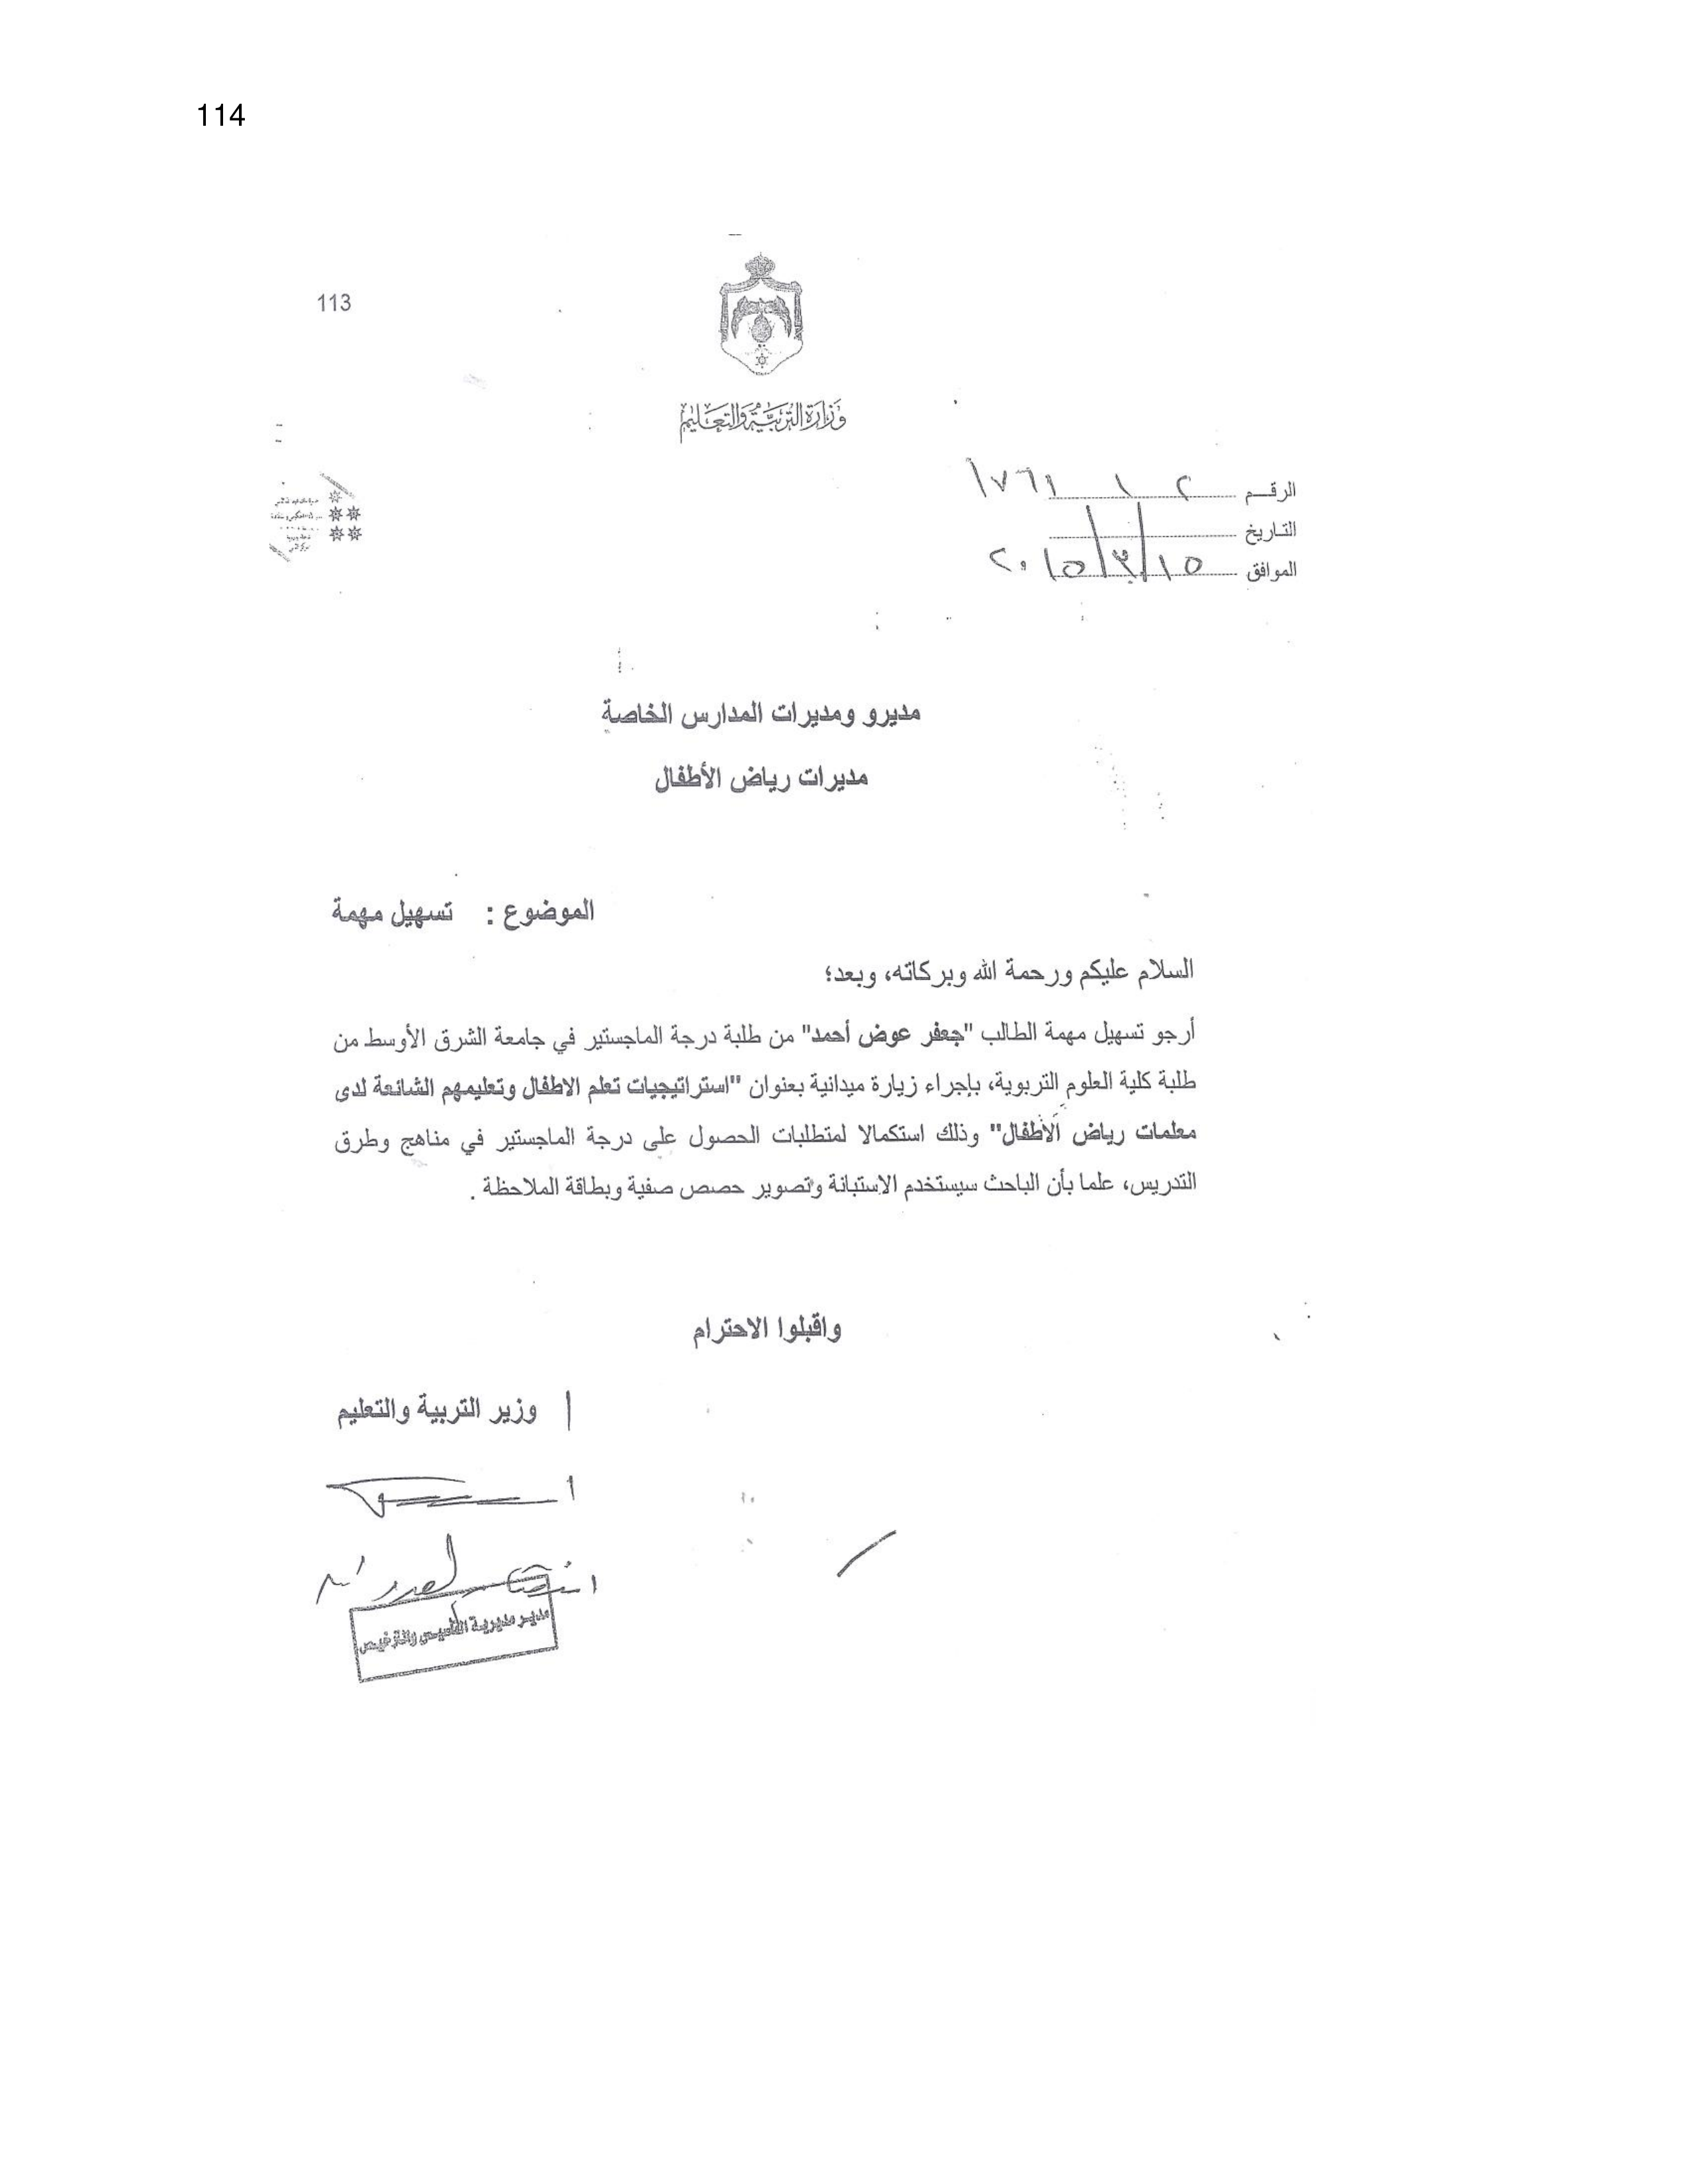 114
113
وزارة التربية والتعليم
الرقـم ٢ ١ ١٧٦١
التاريخ
الموافق ١٥/٣/٢٠١٥
مديرو ومديرات المدارس الخاصة
مديرات رياض الأطفال
الموضوع : تسهيل مهمة
السلام عليكم ورحمة الله وبركاته، وبعد؛
أرجو تسهيل مهمة الطالب "جعفر عوض أحمد" من طلبة درجة الماجستير في جامعة الشرق الأوسط من
طلبة كلية العلوم التربوية، بإجراء زيارة ميدانية بعنوان "استراتيجيات تعلم الاطفال وتعليمهم الشائعة لدى
معلمات رياض الأطفال" وذلك استكمالا لمتطلبات الحصول على درجة الماجستير في مناهج وطرق
التدريس، علما بأن الباحث سيستخدم الاستبانة وتصوير حصص صفية وبطاقة الملاحظة .
واقبلوا الاحترام
/ وزير التربية والتعليم
مدير مديرية التأسيس والترخيص